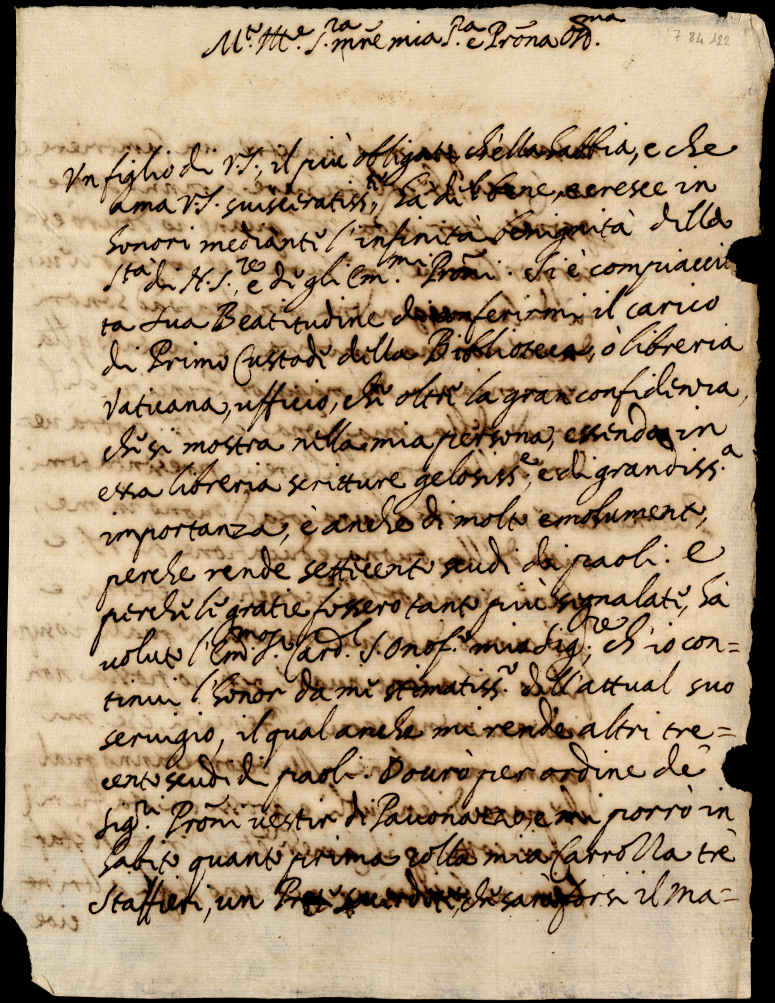 M.to Ill.e S.ra m̃re mia S.ra e Prõna Oss.ma
7 84 122
Un figlio di V.S., il più obligato, ch'ella habbia, e che
ama V.S. suisceratiss.te, hà di bene, e cresce in
honori mediante l'infinita benignità della
S.tà di N.S.re e degli Em.mi Prõni. Si è compiacciu
ta Sua Beatitudine di conferirmi il carico
di Primo Custode della Biblioteca, ò libreria
Vaticana, ufficio, che oltre la gran confidenza,
che si mostra nella mia persona, essendo in
essa libreria scritture gelosiss.e, e di grandiss.a
importanza, è anche di molto emolumento,
perche rende settecento scudi di paoli. E
perche le gratie fossero tanto più segnalate, hà
voluto l'Em.mo S. Card.l S. Onof.o mio Sig.re, ch'io con=
tinui l'honor da me stimatiss.o dell'attual suo
seruigio, il qual anche mi rende altri tre=
cento scudi di paoli. Dourò per ordine de'
Sig.ri Prõni vestir di Pauonazzo, e mi porrò in
habito quanto prima colla mia Carrozza trè
Staffieri, un Prete che sarà forsi il Ma=